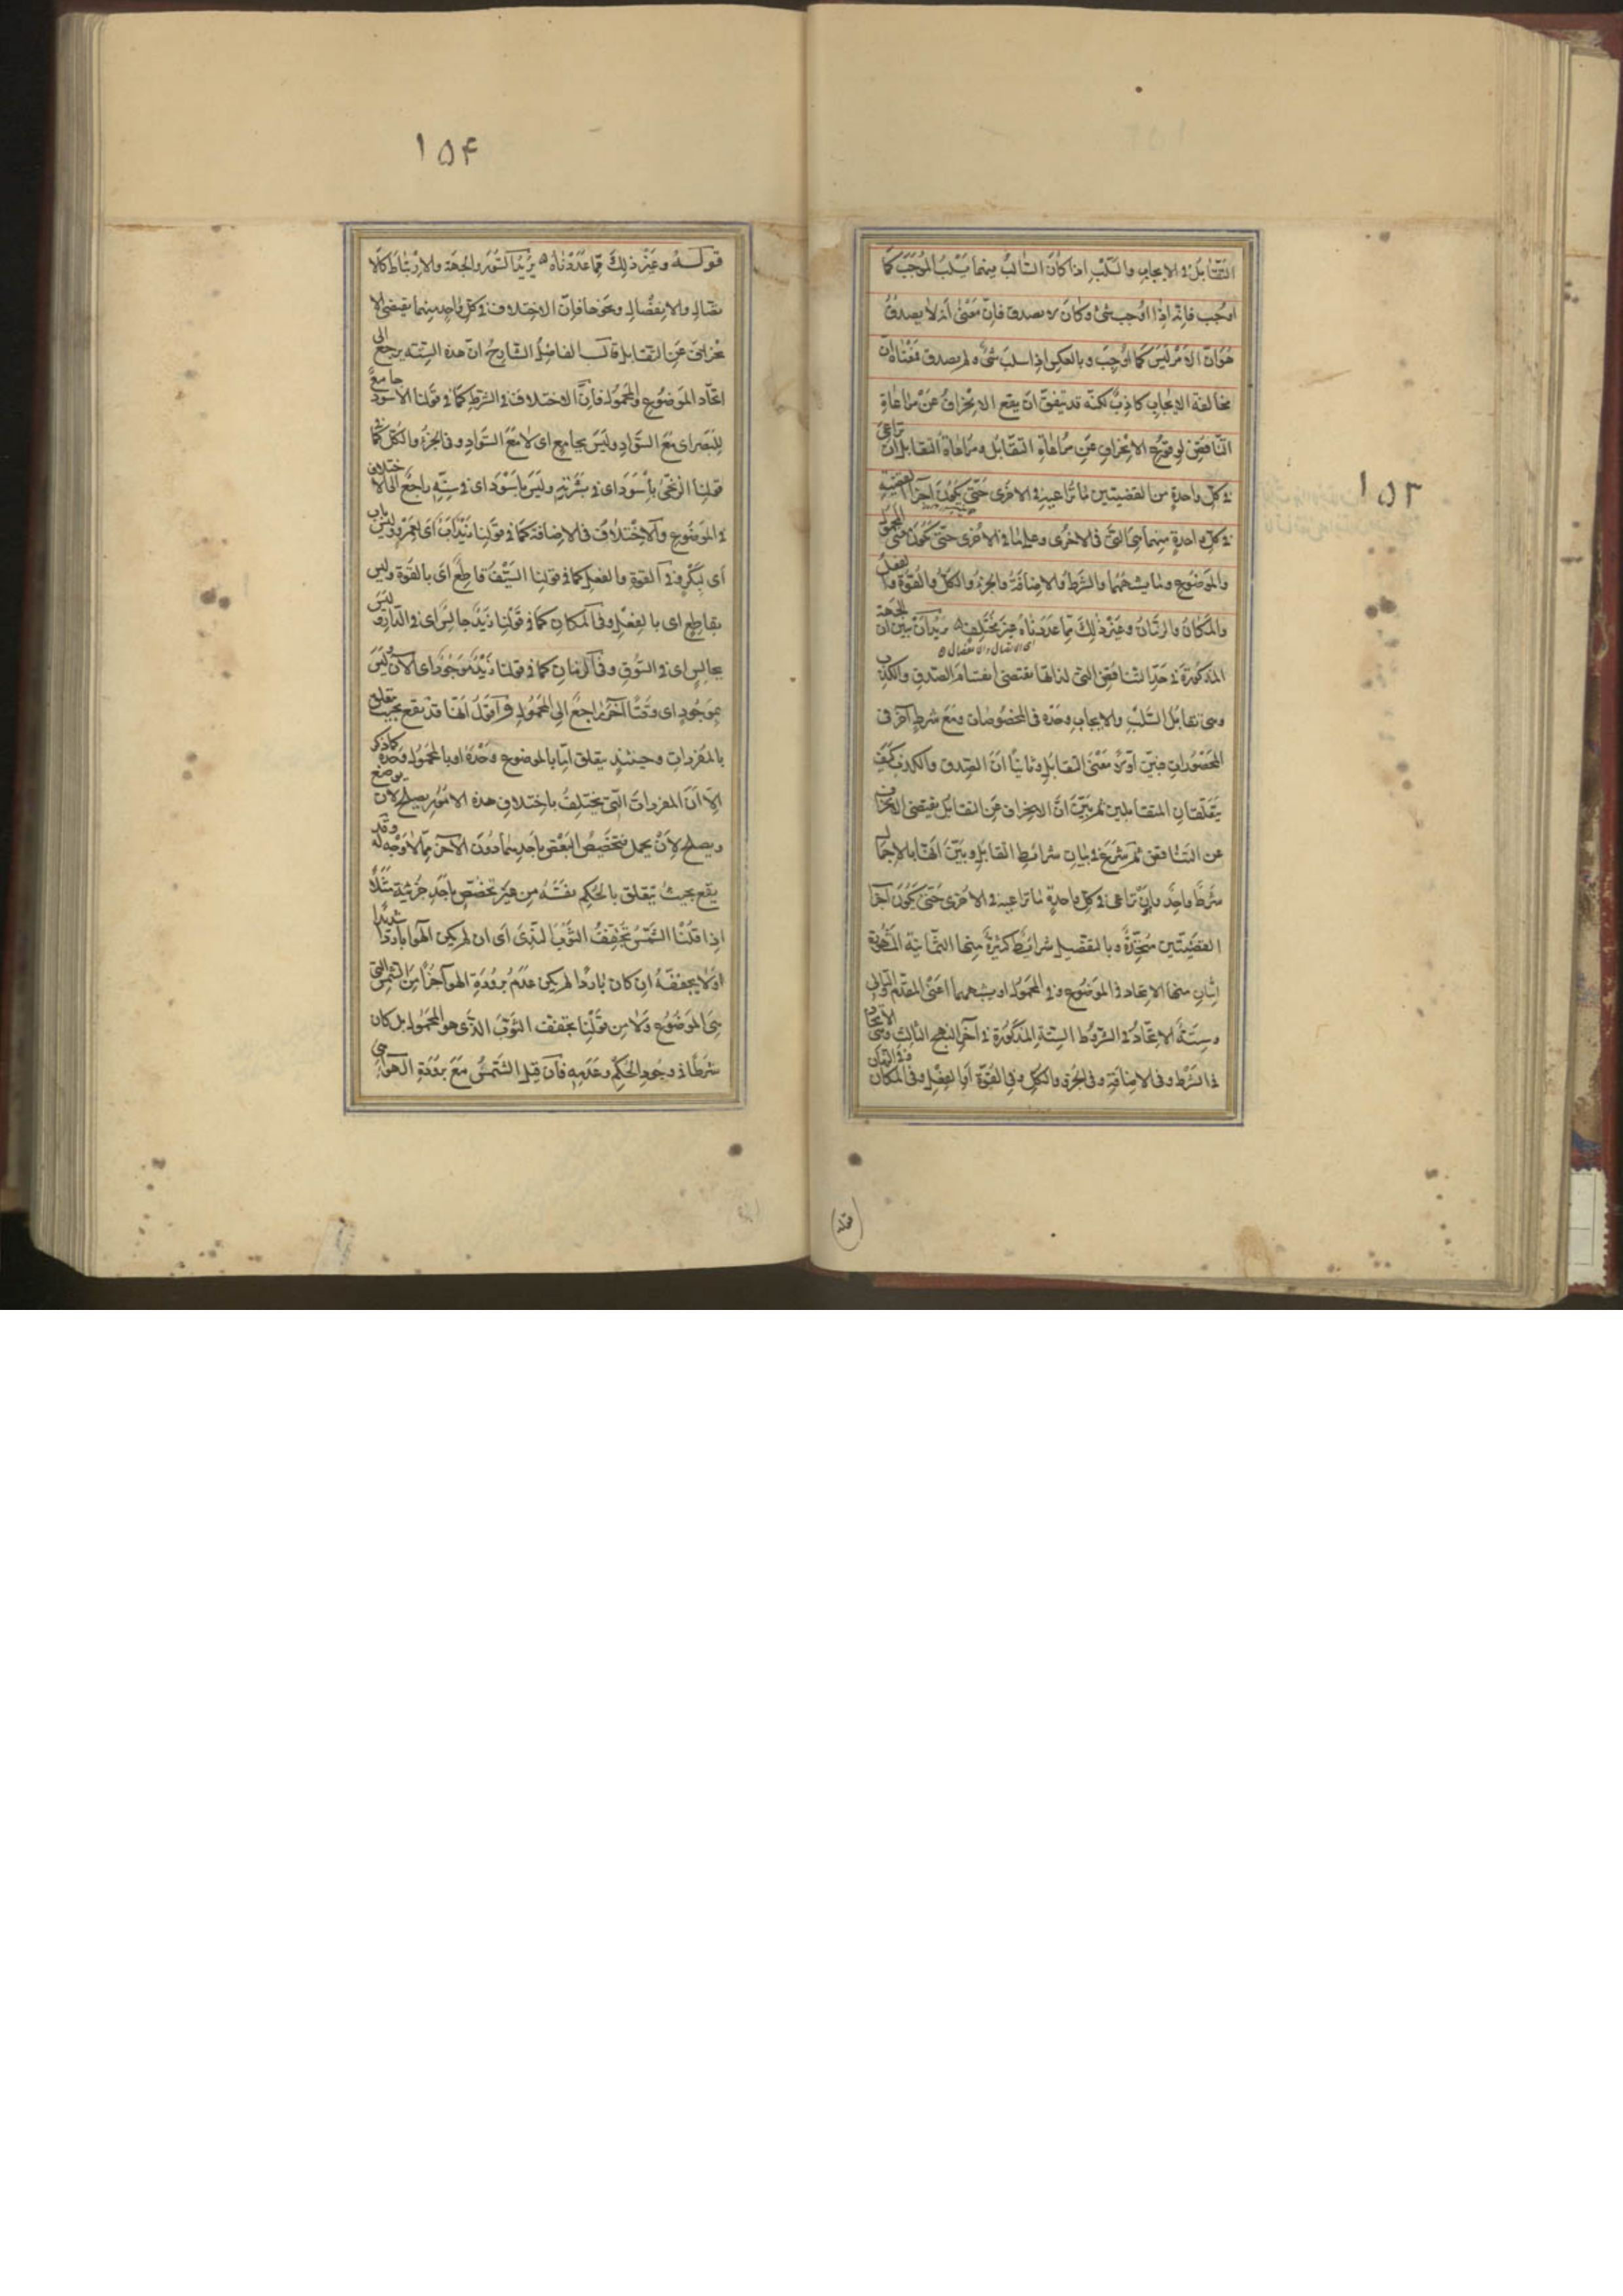 ١٥٣
التقابل في الايجاب والسلب اذا كان السالب منهما يسلب الموجب كما
اوجب فانه اذا اوجب شئ وكان لا يصدق فان معنى انه لا يصدق
هو ان الامر ليس كما اوجب وبالعكس اذا سلب شئ ولم يصدق فمعناه ان
مخالفة الايجاب كاذب لكنه قد يتفق ان يقع الانحراف عن مراعاة
التناقض لوقوع الانحراف عن مراعاة التقابل ومراعاة التقابل ان تراعى
في كل واحدة من القضيتين ما تراعيه في الاخرى حتى يكون اجزا القضية
في كل واحدة منهما هي التي في الاخرى وعلى ما في الاخرى حتى يكون معنى المحمول
والموضوع وما يشبههما والشرط والاضافة والجزء والكل والقوة والفعل
والمكان والزمان وغير ذلك مما عددناه غير مختلف يريد ان يبين ان الجهة
اى الاتصال والانفصال
المذكورة في حد التناقض التي لذاتها يقتضى اقتسام الصدق والكذب
وهى تقابل السلب والايجاب وحده فى المخصوصات ومع شرط آخر فى
المحصورات فبين اولا معنى التقابل وثانيا ان الصدق والكذب كيف
يتعلقان المتقابلين ثم بين ان الانحراف عن التقابل يقتضى الانحراف
عن التناقض ثم شرع في بيان شرائط التقابل وبين انها بالاجمال
شرط واحد وان تراعى في كل واحدة ما تراعيه في الاخرى حتى يكون اجزا
القضيتين متحدة وبالتفصيل شرائط كثيرة منها الثمانية المشهورة
اثنان منها الاتحاد في الموضوع وفي المحمول او يشبههما اعنى المقدم والتالى
وستة الاتحاد في الشروط الستة المذكورة في آخر النهج الثالث وهى الاتحاد
فى الشرط وفى الاضافة وفى الجزء والكل وفى القوة او الفعل وفى المكان وفى الزمان
١٥۴
قوله وغير ذلك مما عددناه يريد السور والجهة والارتباط كالا
تصال والانفصال ونحوها فان الاختلاف في كل واحد منهما يقتضى الا
نحراف عن التقابل قال الفاضل الشارح ان هذه الستة يرجع الى
اتحاد الموضوع والمحمول فان الاختلاف في الشرط كما في قولنا الاسود جامع
للبصر اى مع السواد وليس بجامع اى لا مع السواد وفى الجزء والكل كما
قولنا الزنجى باسود اى في بشرته وليس باسود اى في سنه راجع الى الاختلاف
في الموضوع والاختلاف فى الاضافة كما في قولنا زيد اب اى لعمرو وليس باب
اى لبكر وفي القوة والفعل كما في قولنا السيف قاطع اى بالقوة وليس
بقاطع اى بالفعل وفى المكان كما في قولنا زيد جالس اى في الدار وليس
بجالس اى في السوق وفى الزمان كما في قولنا زيد موجود اى الآن وليس
بموجود اى وقتا آخر راجع الى المحمول واقول انها قد تقع بحيث يتعلق
بالمفردات وحينئذ يتعلق اما بالموضوع وحده او بالمحمول وحده كما ذكر
الا ان المفردات التى يختلف باختلاف هذه الامور يصلح لان يوضع
ويصلح لان يحمل فتخصيص البعض باحدهما دون الآخر مما لا وجه له وقد
يقع بحيث يتعلق بالحكم نفسه من غير تخصص باحد جزئيه مثلا
اذا قلنا الشمس تجفف الثوب الندى اى ان لم يكن الهوا باردا شديدا
اولا يجففه ان كان باردا لم يكن عدم برودة الهوا جزا من الشمس التى
هى الموضوع ولا من قولنا يجفف الثوب الذى هو المحمول بل كان
شرطا في وجود الحكم وعدمه فان قيل الشمس مع برودة الهوا هى